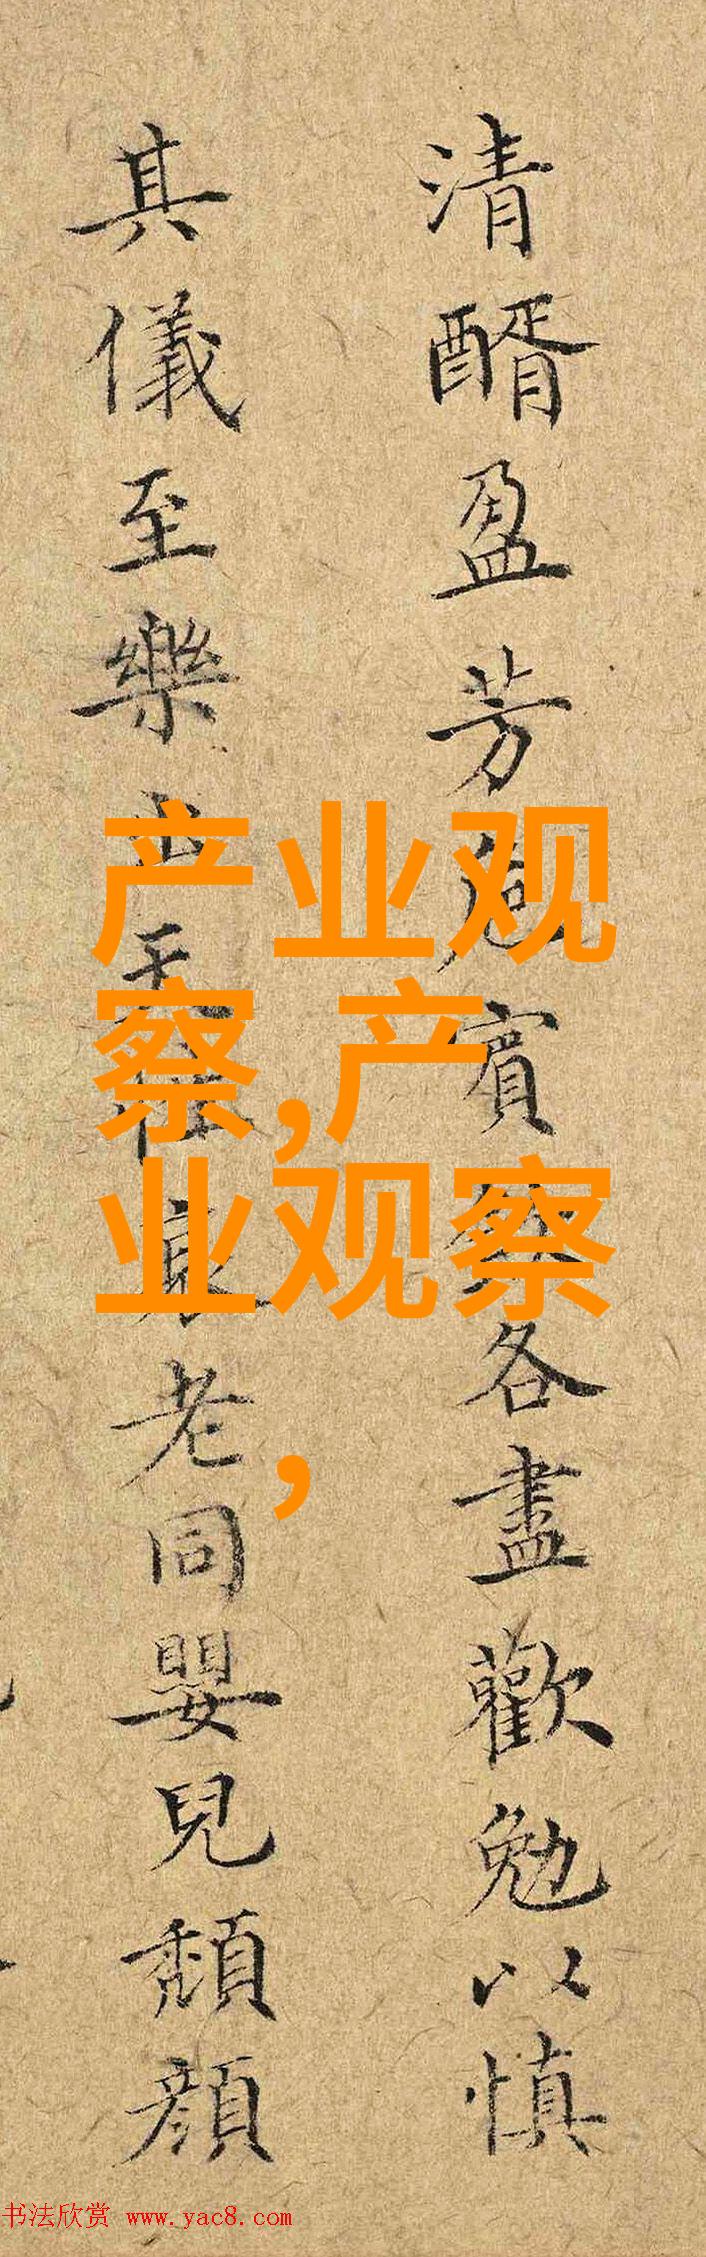 清醑盈芳賓各盡歡勉以慎
其儀至樂天衰老同嬰兒頹顏
产业观
察,产
业观察
,
书法欣赏 www.yac8.com